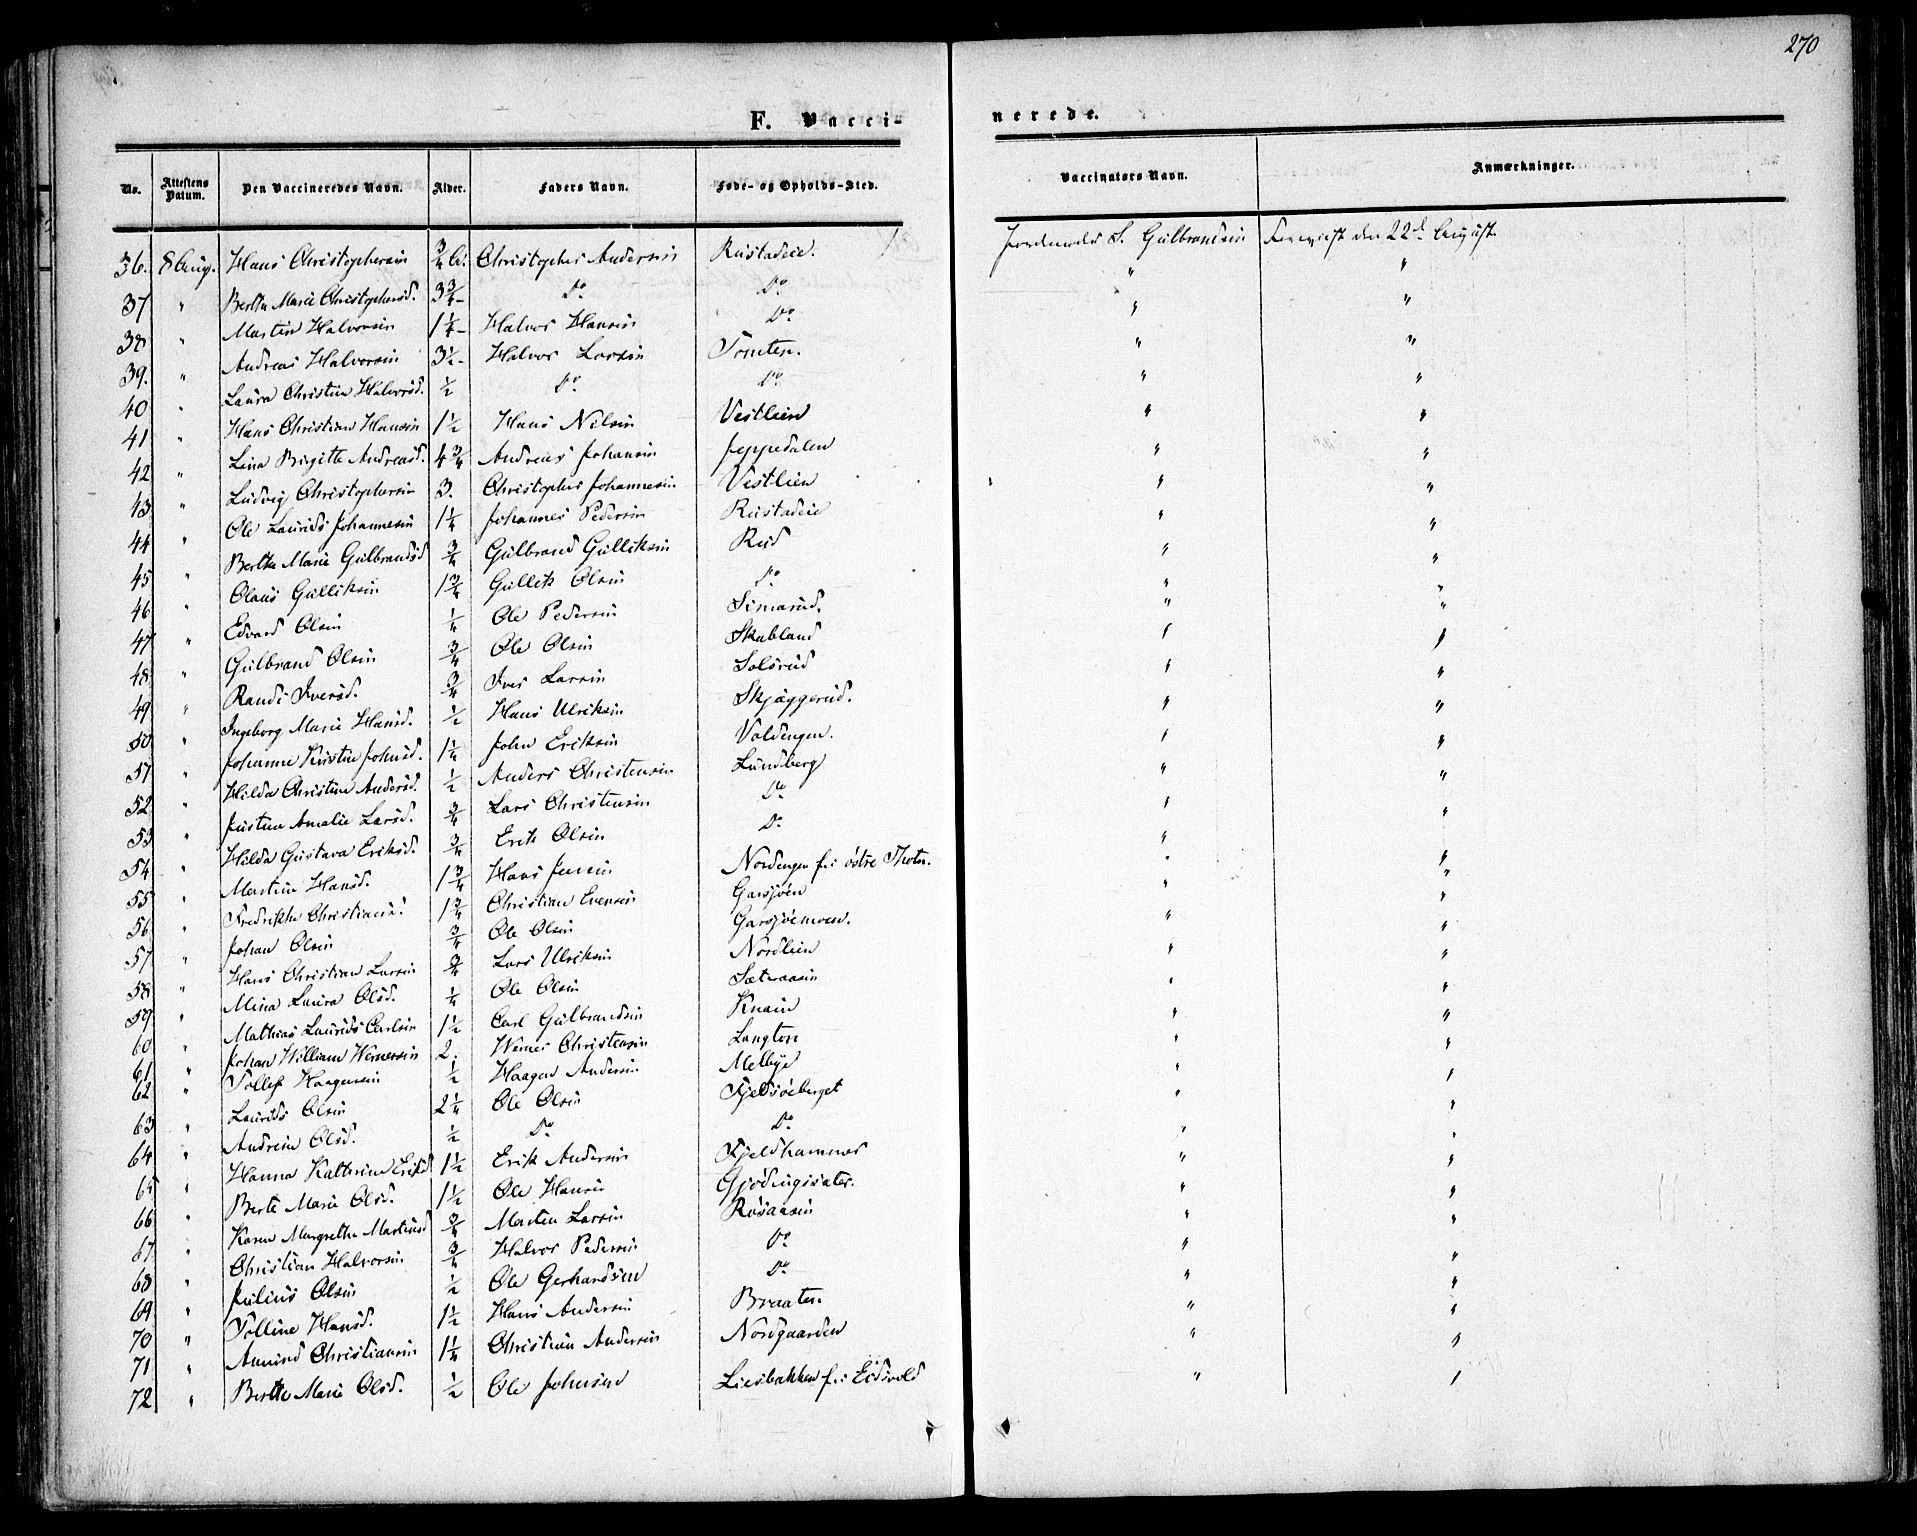 270
F. Vaccinerede.
No. | Attestens Datum. | Den Vaccineredes Navn. | Alder. | Faders Navn. | Føde- og Opholds-Sted. | Vaccinators Navn. | Anmærkninger.
36. | 8 Aug. | Hans Christophersen | 3/4 A. | Christopher Andersen | Rustadeie. | S. Gulbrandsen | den 22d August.
37 | " | Berthe Marie Christophersd. | 3 3/4 - | Do | Do | " | "
38 | " | Martin Halvorsen | 1 1/4 - | Halvor Hansen | Do | " | "
39. | " | Andreas Halvorsen | 3 1/2 - | Halvor Larsen | Tomten. | " | "
40 | " | Laura Christine Halvorsd. | 1/2 | Do | Do | " | "
41 | " | Hans Christian Hansen | 1 1/2 | Hans Nilsen | Vestlien | " | "
42 | " | Lina Birgitte Andreasd. | 4 3/4 | Andreas Johansen | Jeppedalen | " | "
43 | " | Ludvig Christophersen | 3. | Christopher Johannesen | Vestlien | " | "
44 | " | Ole Laurids Johannesen | 1 1/4 | Johannes Pedersen | Rustadeie | " | "
45 | " | Berthe Marie Gulbrandsd | 3/4 | Gulbrand Gulliksen | Rud | " | "
46 | " | Olaus Gulliksen | 1 3/4 | Gullik Olsen | Do | " | "
47 | " | Edvard Olsen | 1/4 | Ole Pedersen | Simarud. | " | "
48 | " | Gulbrand Olsen | 3/4 | Ole Olsen | Skabland | " | "
49 | " | Randi Iversd. | 3/4 | Iver Larsen | Solsrud | " | "
50 | " | Ingeborg Marie Hansd. | 1/2 | Hans Ulriksen | Skjæggerud. | " | "
51 | " | Johanne Kirstine Johnsd. | 1 1/4 | John Eriksen | Voldengen. | " | "
52 | " | Hilda Christine Andersd. | 1/2 | Anders Christensen | Lundberg | " | "
53 | " | Justine Amalie Larsd. | 3/4 | Lars Christensen | Do | " | "
54 | " | Hilda Gustava Eriksd. | 3/4 | Erik Olsen | Do | " | "
55 | " | Martin Hansd. | 1 3/4 | Hans Jensen | Nordengen f. i østre Thoten. | " | "
56 | " | Fredrikke Christiansd. | 1 3/4 | Christian Evensen | Garsjøen | " | "
57 | " | Johan Olsen | 3/4 | Ole Olsen | Garsjøemoen. | " | "
58 | " | Hans Christian Larsen | 3/4 | Lars Ulriksen | Nordlien | " | "
59 | " | Mina Laura Olsd. | 1/4 | Ole Olsen | Sætraasen | " | "
60 | " | Mathias Laurids Carlsen | 1 1/2 | Carl Gulbrandsen | Knain | " | "
61 | " | Johan William Wernersen | 2. | Werner Christensen | Langton | " | "
62 | " | Tollef Haagensen | 1/2 | Haagen Andersen | Melbye | " | "
63 | " | Laurids Olsen | 2 1/4 | Ole Olsen | Fjeldsøeberget | " | "
64 | " | Andrine Olsd. | 1/2 | Do | Do | " | "
65 | " | Hanna Kathrine Eriksd | 1 1/2 | Erik Andersen | Fjeldhammer | " | "
66 | " | Berte Marie Olsd. | 1 1/2 | Ole Hansen | Gjødingsæter. | " | "
67 | " | Karen Margrethe Martinsd | 3/4 | Morten Larsen | Røsaasen | " | "
68 | " | Christian Halvorsen | 3/4 | Halvor Pedersen | Do | " | "
69 | " | Julius Olsen | 1/2 | Ole Gerhardsen | Do | " | "
70 | " | Tolline Hansd. | 1 1/2 | Hans Andersen | Braaten | " | "
71 | " | Amund Christiansen | 1 1/4 | Christian Andersen | Nordgaarden | " | "
72 | " | Berthe Marie Olsd. | 1/2 | Ole Johnsen | Liesbakken f. i Eidsvold | " | "